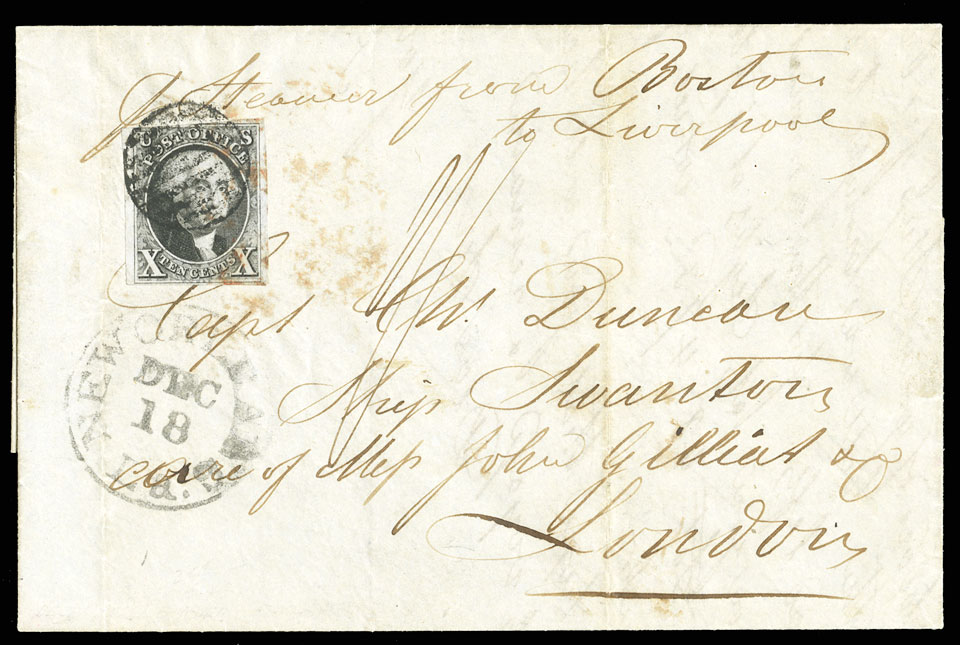 p Steamer from Boston
to Liverpool
U S
POST OFFICE
X TEN CENTS X
Capt C W. Duncan
Ship Swanton
care of Mess John Gilliat & Co
London
NEW ORLEANS La.
DEC
18